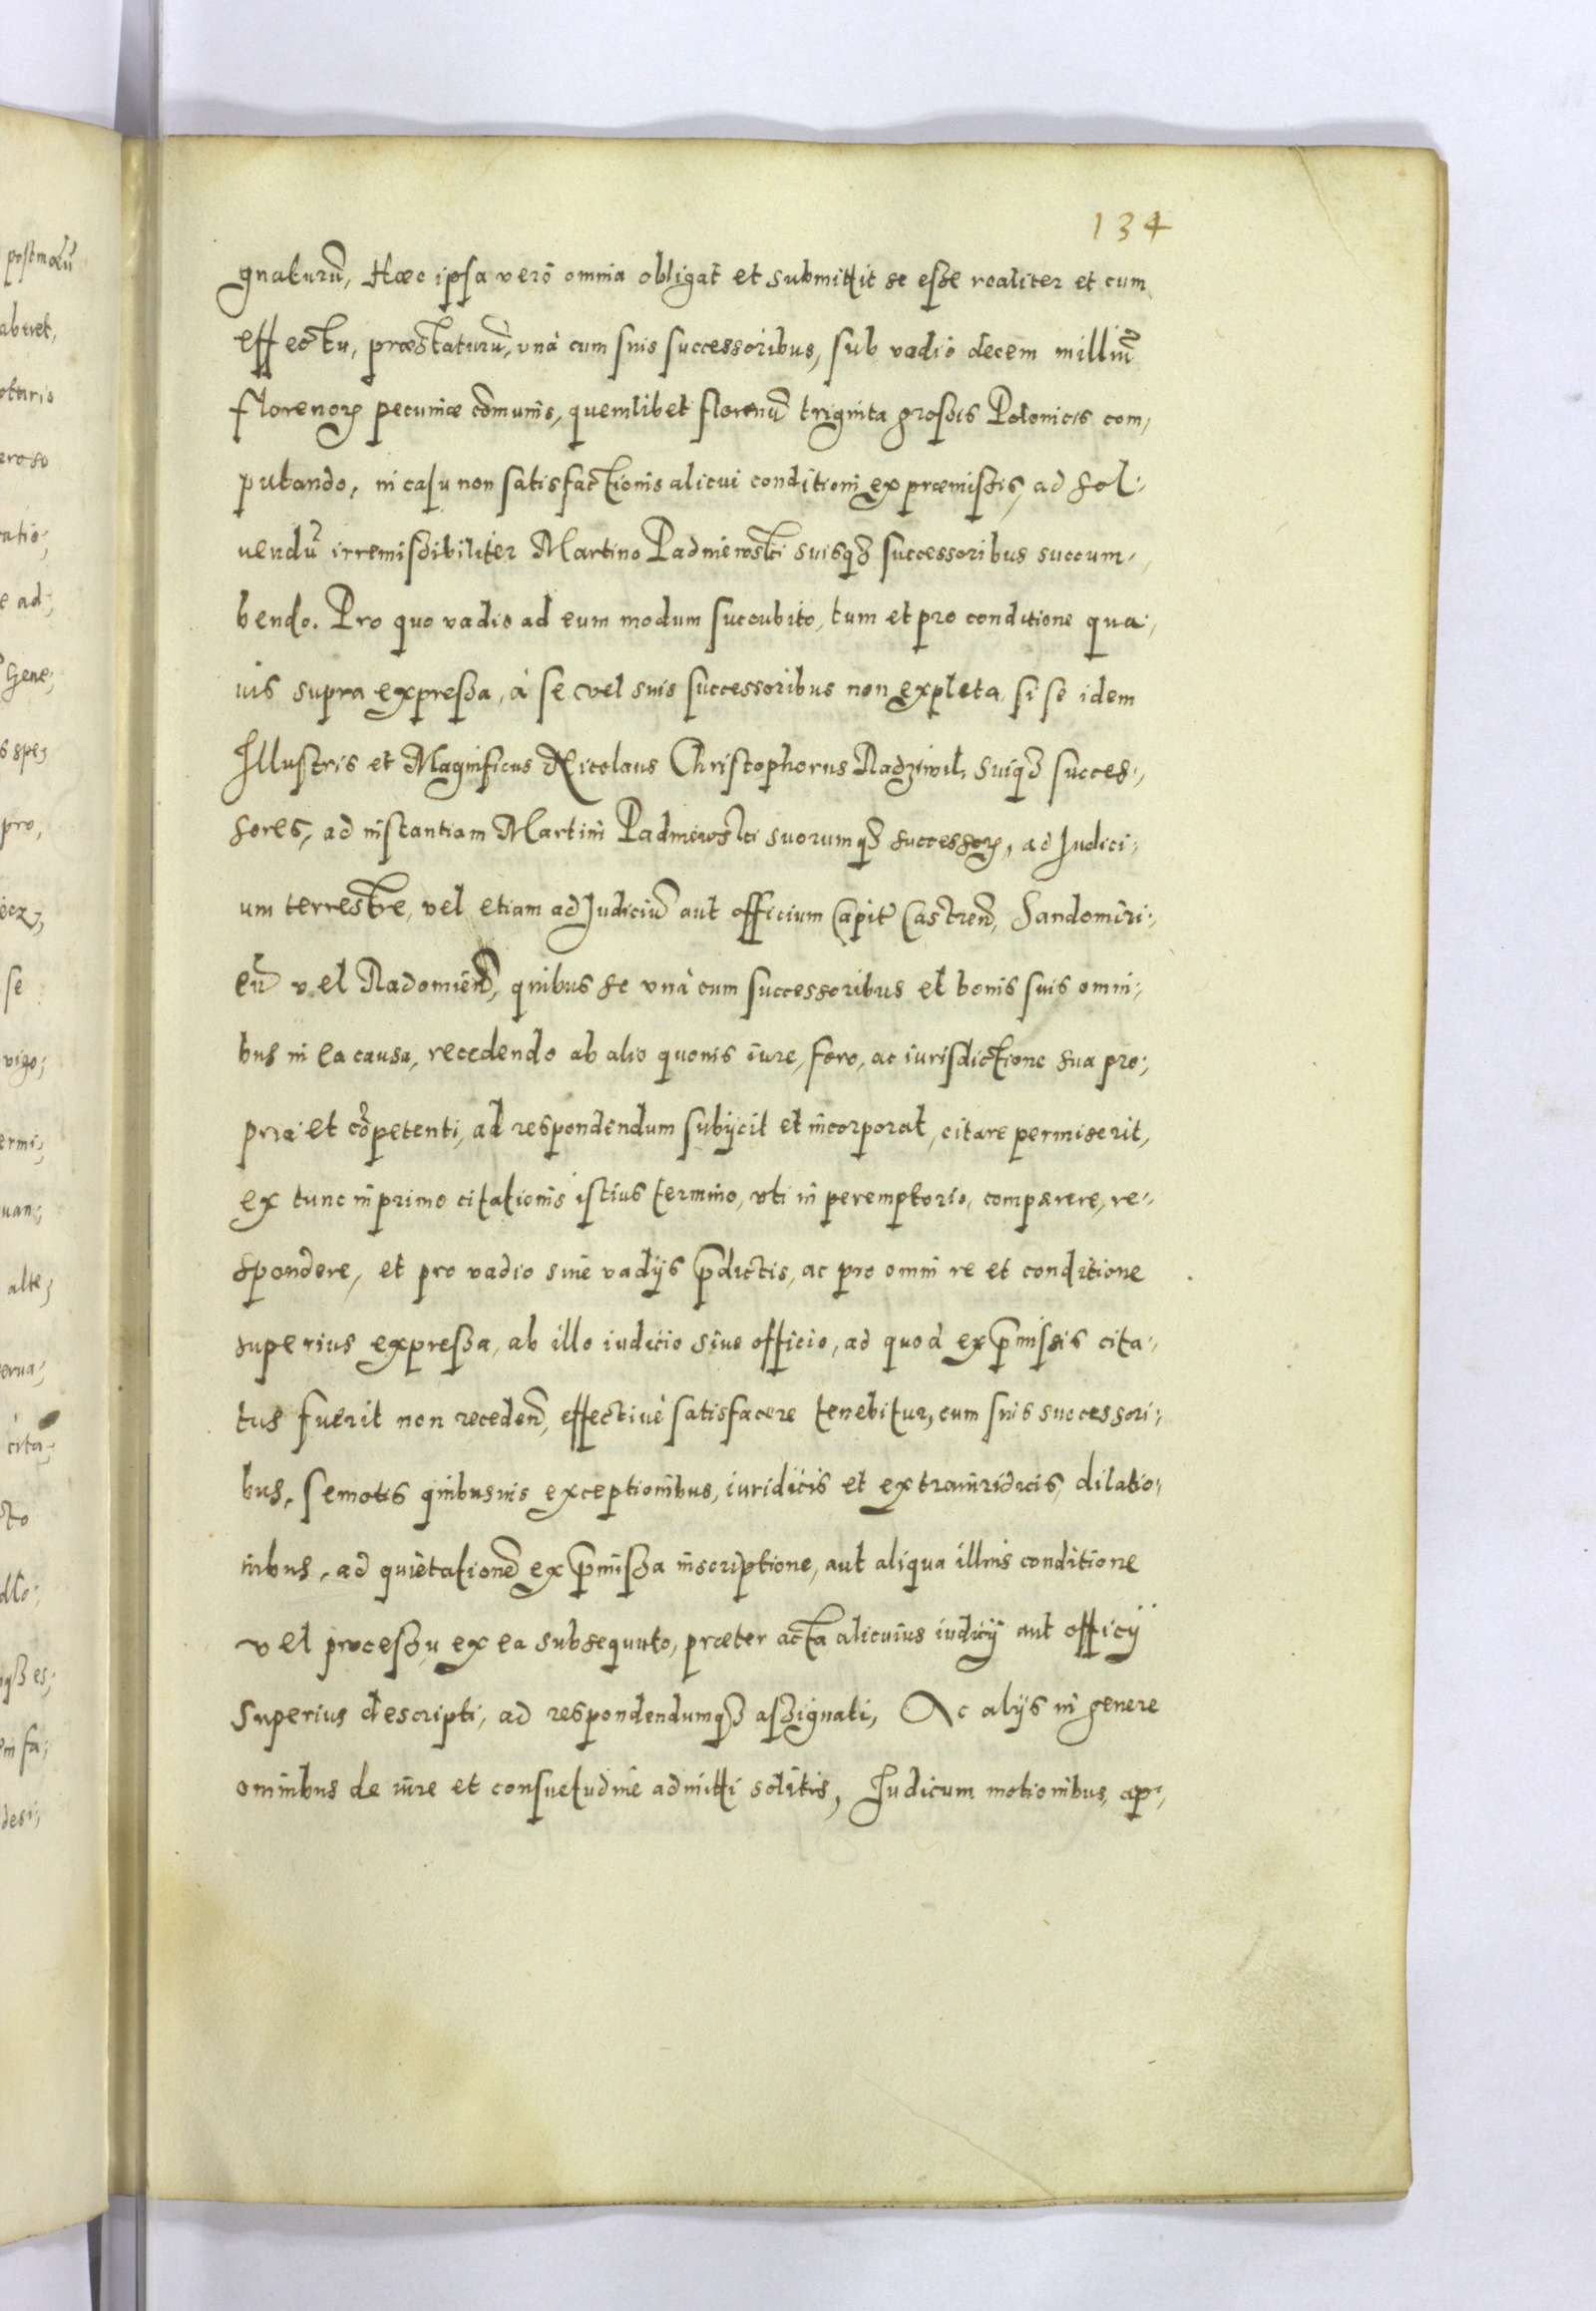 134
gnaturū, Haec ipsa verò omnia obligat et submittit se esse realiter et cum
effectu, praestaturū, vnà cum suis successoribus, sub vadio decem milliū
florenorꝝ pecuniae cōmunis, quemlibet florenū triginta grossis Polonicis com,
putando, in casu non satisfactionis alicui conditioni ex praemissis, ad sol,
uendū irremissibiliter Martino Padniewski suisqꝫ successoribus succum,
bendo. Pro quo vadio ad eum modum succubito, tum et pro conditione qua,
uis supra expressa, à se vel suis successoribus non expleta, si se idem
Illustris et Magnificus Nicolaus Christophorus Radziwil, suiqꝫ succes,
sores, ad instantiam Martini Padniewski suorumqꝫ successorꝝ, ad Iudici,
um terrestre, vel etiam ad Iudiciū aut officium Capit̄ Castreñ, Sandomiri,
eñ vel Radomieñ, quibus se vnà cum successoribus et bonis suis omni,
bus in ea causa, recedendo ab alio quouis iure, foro, ac iurisdictione sua pro,
pria et cōpetenti, ad respondendum subijcit et incorporat, citare permiserit,
ex tunc in primo citationis istius termino, vti in peremptorio, comparere, re,
spondere, et pro vadio siue vadijs p̄dictis, ac pro omni re et conditione
superius expressa, ab illo iudicio siue officio, ad quod ex p̄missis cita,
tus fuerit non recedeñ, effectiuè satisfacere tenebitur, cum suis successori,
bus, semotis quibusuis exceptionibus, iuridicis et extraiuridicis, dilatio,
nibus, ad quietationē ex p̄missa inscriptione, aut aliqua illius conditione
vel processu ex ea subsequuto, praeter acta alicuius iudicij aut officij
superius descripti, ad respondendumqꝫ assignati, Ac alijs in genere
omnibus de iure et consuetudine admitti solitis, Iudicum motionibus, ap,